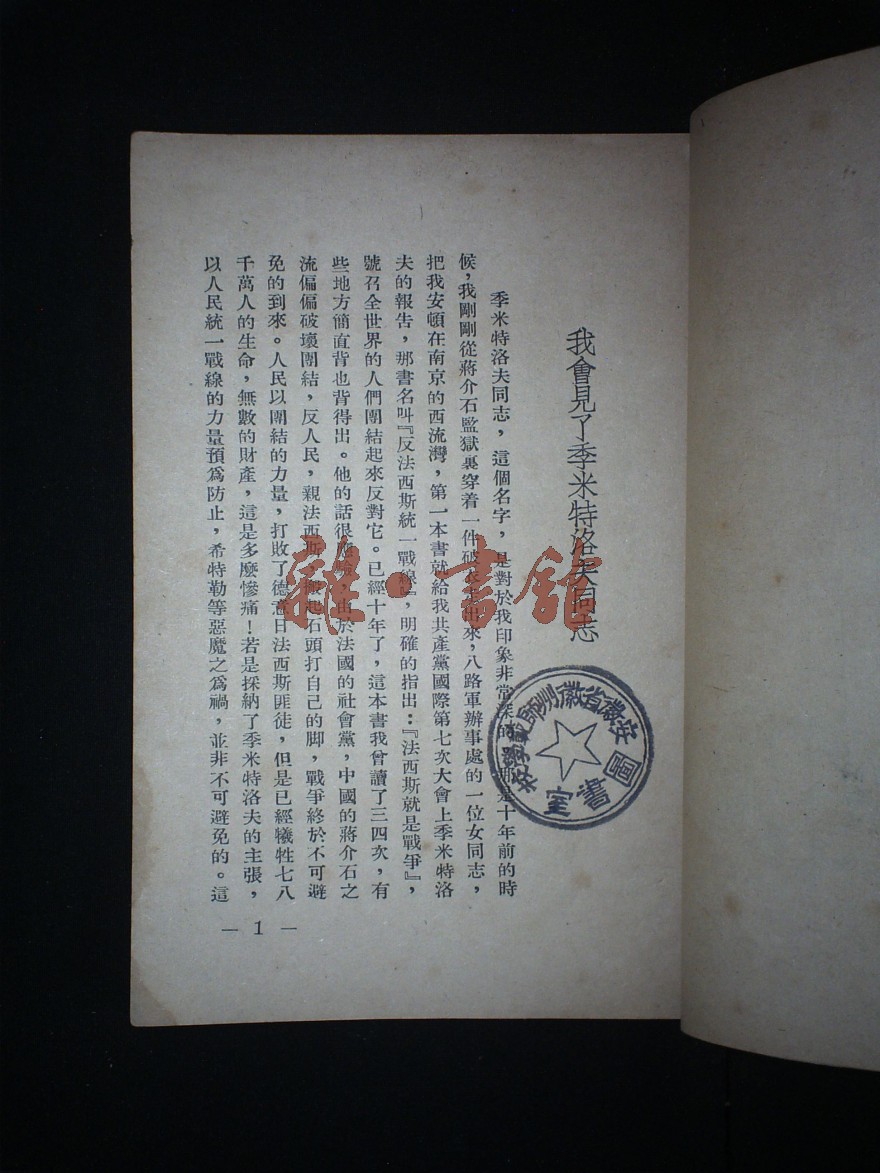 我會見了季米特洛夫同志
季米特洛夫同志，這個名字，是對於我印象非常深的，那是十年前的時
候，我剛剛從蔣介石監獄裏穿着一件破出來，八路軍辦事處的一位女同志，
把我安頓在南京的西流灣，第一本書就給我共產黨國際第七次大會上季米特洛
夫的報告，那書名叫『反法西斯統一戰線』，明確的指出：『法西斯就是戰爭』，
號召全世界的人們團結起來反對它。已經十年了，這本書我曾讀了三四次，有
些地方簡直背也背得出。他的話很，由於法國的社會黨，中國的蔣介石之
流偏偏破壞團結，反人民，親法西斯，搬起石頭打自己的脚，戰爭終於不可避
免的到來。人民以團結的力量，打敗了德意日法西斯匪徒，但是已經犧牲七八
千萬人的生命，無數的財產，這是多麽慘痛！若是採納了季米特洛夫的主張，
以人民統一戰線的力量預爲防止，希特勒等惡魔之爲禍，並非不可避免的。這
— 1 —
安徽省徽州師範學校
圖書室
雜·書館